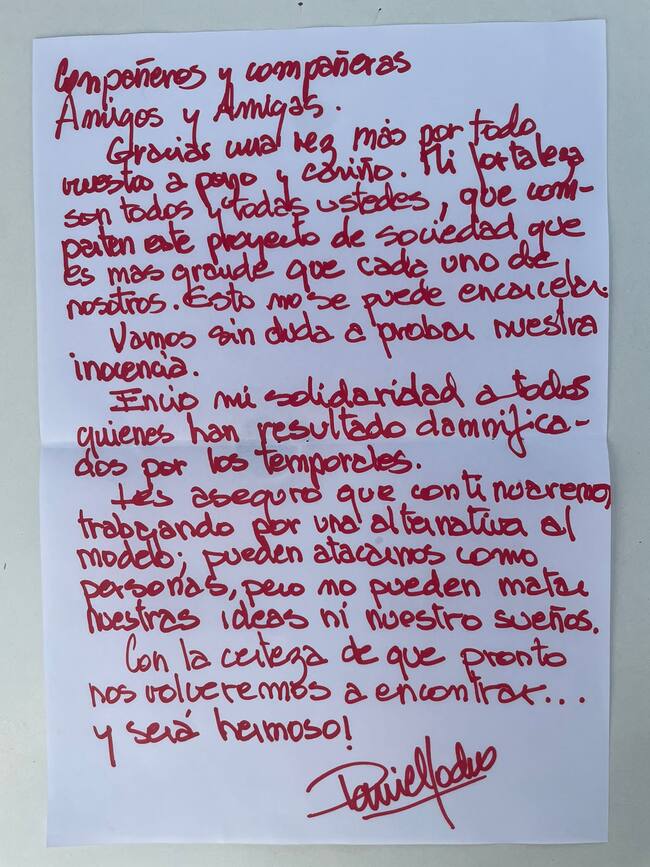 Compañeros y compañeras
Amigos y Amigas.
Gracias una vez más por todo
vuestro apoyo y cariño. Mi fortaleza
son todos y todas ustedes, que com-
parten este proyecto de sociedad que
es mas grande que cada uno de
nosotros. Esto no se puede encarcelar.
Vamos sin duda a probar nuestra
inocencia.
Envio mi solidaridad a todos
quienes han resultado damnifica-
dos por los temporales.
Les aseguro que continuaremos
trabajando por una alternativa al
modelo; pueden atacarnos como
personas, pero no pueden matar
nuestras ideas ni nuestro sueños.
Con la certeza de que pronto
nos volveremos a encontrar...
y será hermoso!
Daniel Jadue